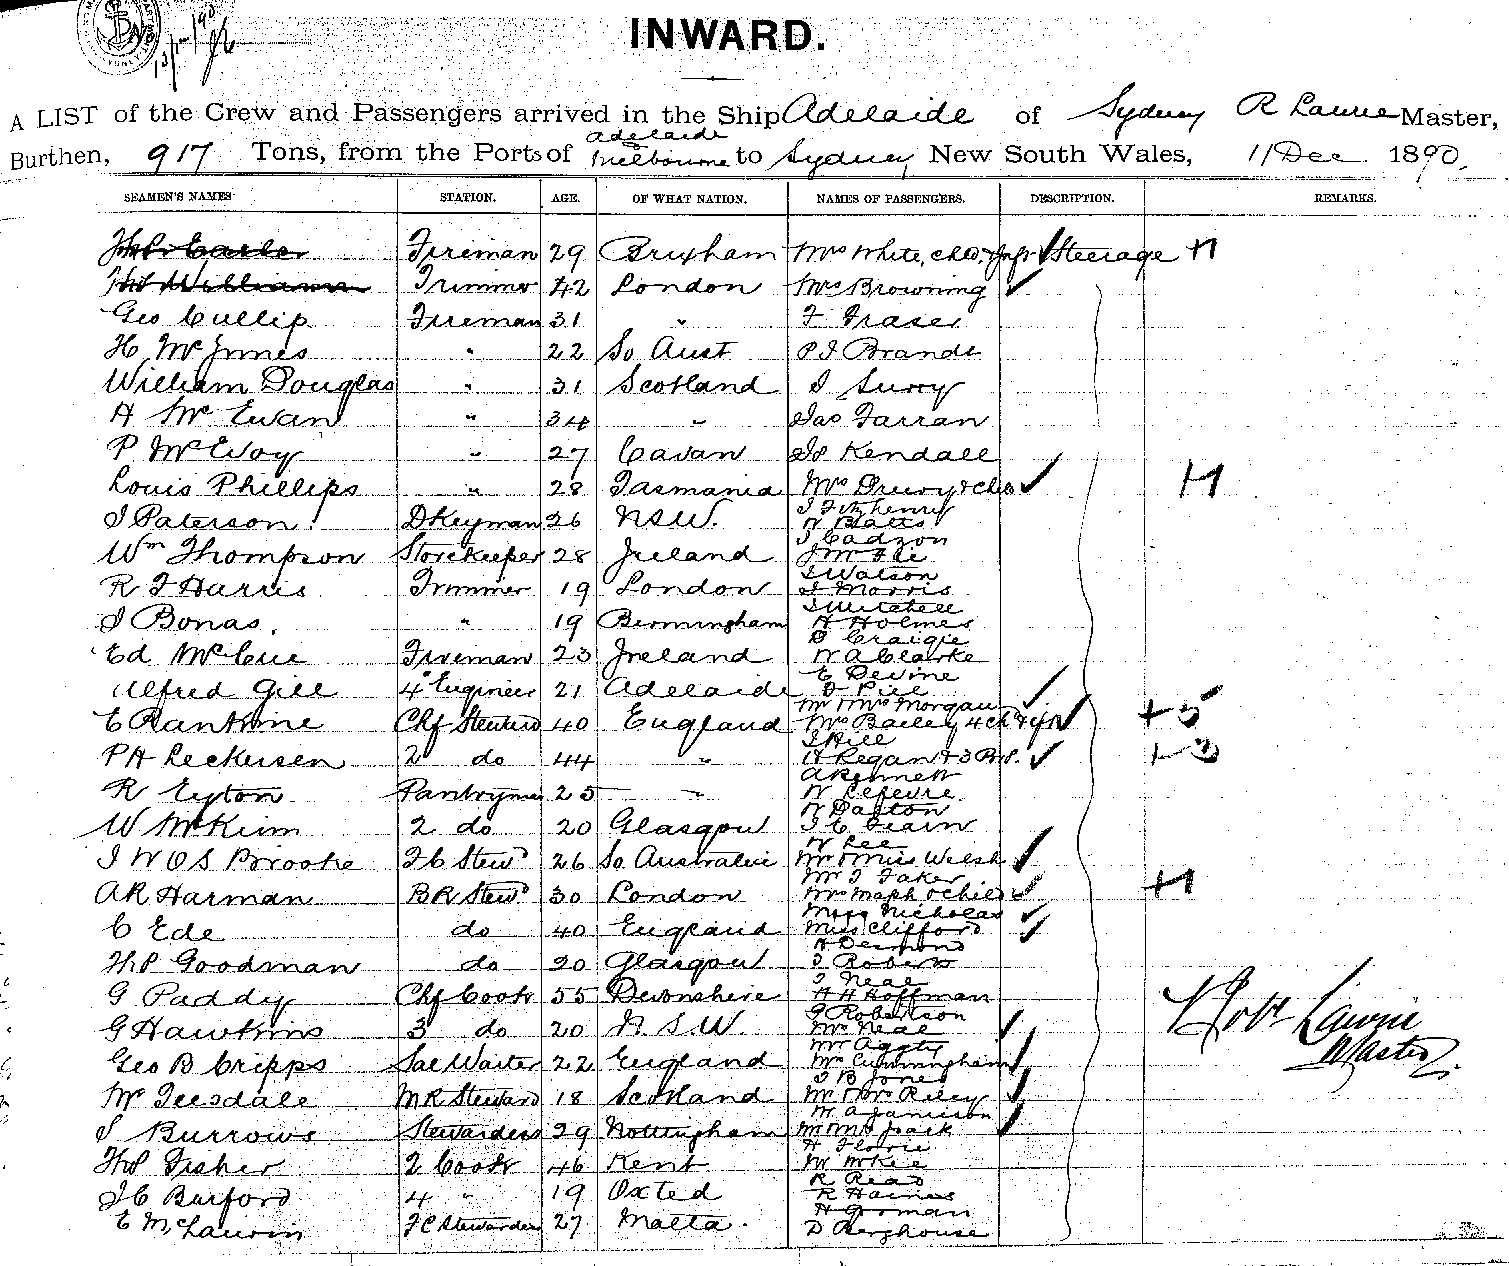 INWARD.
A LIST of the Crew and Passengers arrived in the Ship Adelaide of Sydney R Lawrie Master,
Burthen, 917 Tons, from the Ports of Adelaide Melbourne to Sydney New South Wales, 11 Dec. 1890.
SEAMEN'S NAMES STATION. AGE. OF WHAT NATION. NAMES OF PASSENGERS. DESCRIPTION. REMARKS.
Fireman 29 Brixham Mrs White, Steerage
Thos Williams Trimmer 42 London Mrs Browning
Geo Cullip Fireman 31 " F Fraser
H McInnes " 22 So Aust P J Brandt
William Douglas " 31 Scotland J Surry
A McEwan " 34 " Jas Farran
P McEvoy " 27 Cavan Kendall
Louis Phillips " 28 Tasmania Mrs Drewy & Chd
J Paterson. DKeyman 26 NSW. J Fitzhenry
W Batts
Wm Thompson Storekeeper 28 Ireland J Cadzon
R J Harris Trimmer 19 London J Watson
J Morris
J Bonas. " 19 Birmingham J Mitchell
A Holmes
Ed McCue Fireman 23 Ireland D Craigie
W A Clarke
Alfred Gill 4th Engineer 21 Adelaide E Devine
Mr & Mrs Morgan
E Rankine Chf Steward 40 England Mrs Bailey, 4 ch & inf
J Hill
P A Leckersen 2 do 44 " H Regan + 3
A Kennett
R Eyton Pantryman 25 " W Lefevre
W Daston
W McKim 2 do 20 Glasgow
W Lee
J W O S Brooke F C Stewd 26 So Australia Mr & Miss Welsh
Mr J Faker
A R Harman B R Stewd 30 London Mrs & child
Miss Nicholas
C Ede do 40 England Miss Clifford
A Desmond
Thos Goodman do 20 Glasgow J Roberts
J Neal
G Paddy Chf Cook 55 Devonshire H H Hoffman
G Robertson
G Hawkins 3 do 20 N. S. W. Mrs Neal
Geo B Cripps Sal Waiter 22 England Mrs Cunningham
J B Jones
W Teesdale M R Steward 18 Scotland Mr & Mrs Riley
W A Jamieson
J Burrows Stewardess 29 Nottingham Mr & Mrs Jack
Thos Fisher 2 Cook 46 Kent W McKie
R Read
J C Burford 4 " 19 Oxted R Haines
H Gorman
E McLauvin F C Stewardess 27 Malta. D Berghouse
Robt Lawrie
Master